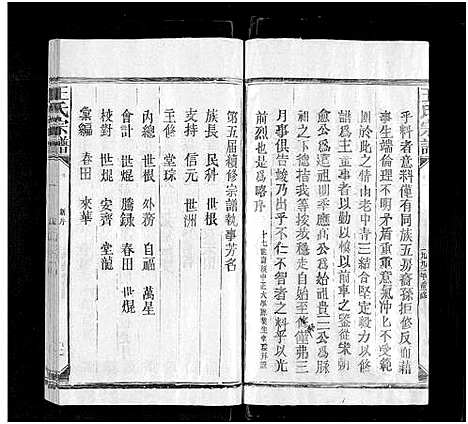 乎料者意料僅有同族五房喬孫拒修反而
事生端倫理不明矛盾重重意氣沖亡不受範
於此之情由老中青三結合堅定毅力以修
譜爲主董事者以勤以慎以前主之鑒從宋朔
愈公爲遠祖明季應高公爲始祖貴二公爲脉
祖之下德措我等接修走自始至終僅弗三
月事俱告竣乃出乎不仁不智者之料乎以光
前烈也是爲畧序
第五届續修宗譜執事芳名
族長 民科 世根
支持 信元 世洲
主修 堂琮
內總 世根 外務 自福 萬星
會計 世焜 謄録 春田 世焜
校對 世焜 安齊 堂龍
彙編 春田 來華
王氏宗譜